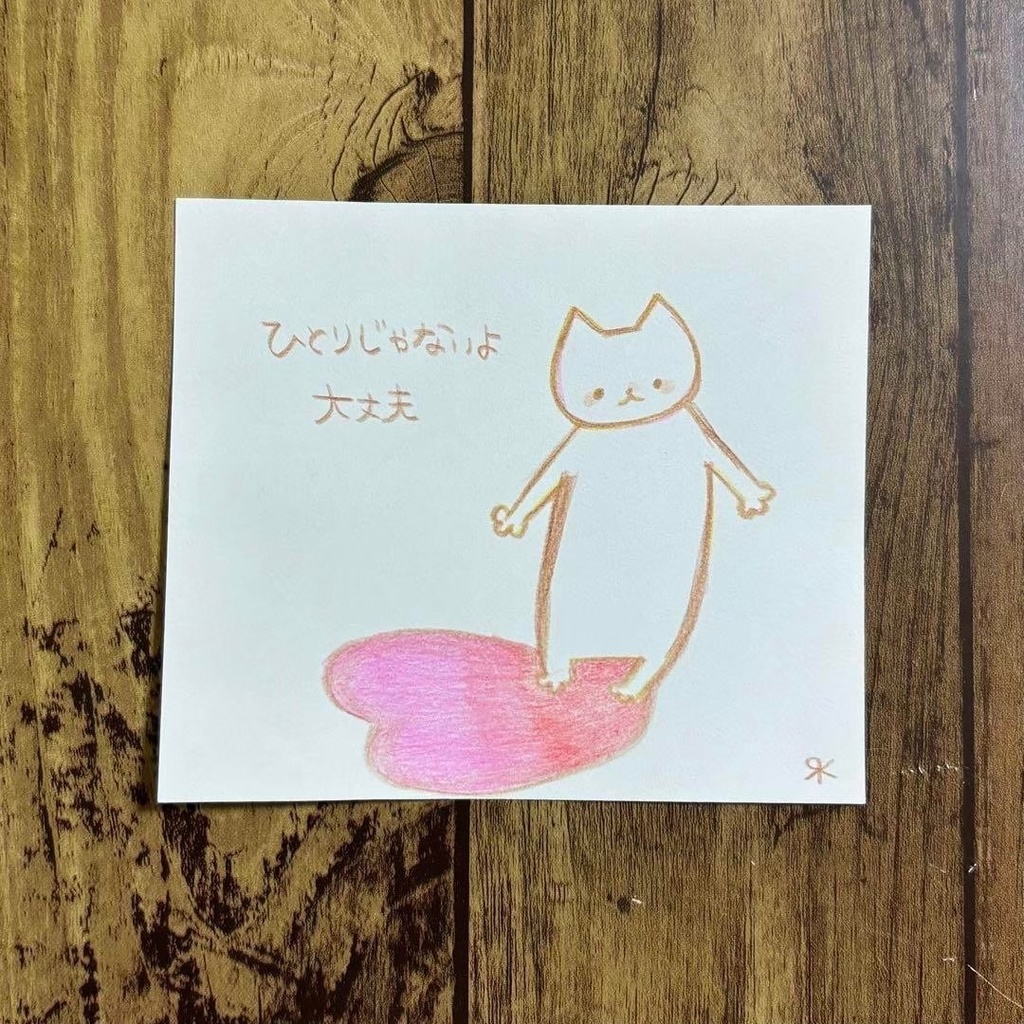 ひとりじゃないよ
大丈夫